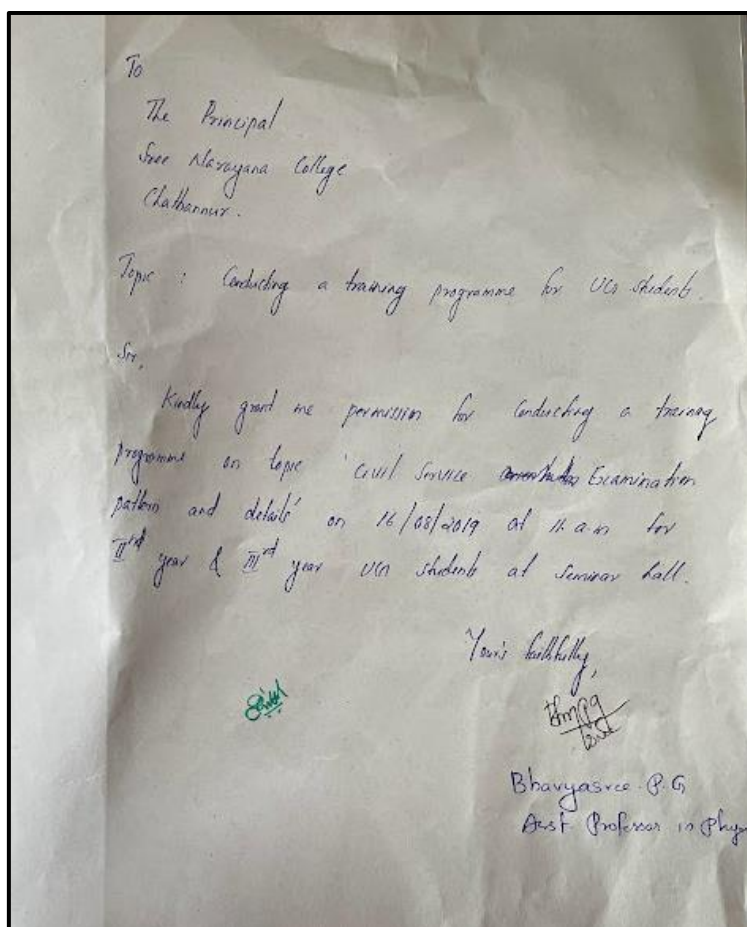 To
The Principal
Sree Narayana College
Chathannur.
Topic : Conducting a training programme for UG students.
Sir,
Kindly grant me permission for conducting a training
programme on topic 'Civil Service Examination
pattern and details' on 16/08/2019 at 11 a.m for
IIrd year & IIIrd year UG students at Seminar hall.
Your's faithfully,
Bhavyasree P.G
Asst Professor in Phy